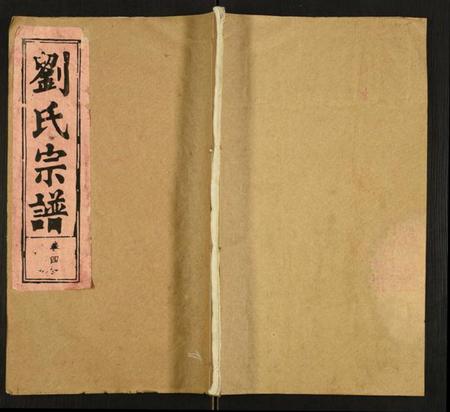 劉氏宗譜
卷四